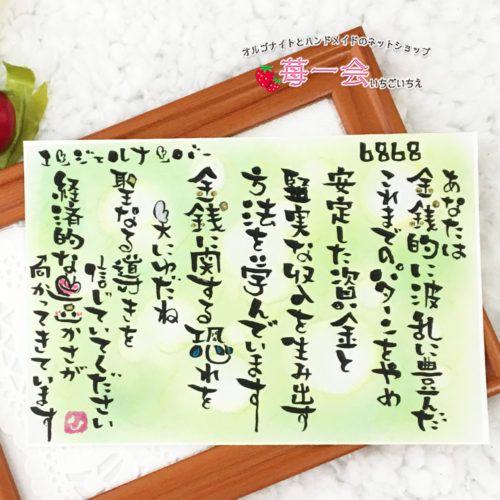 オルゴナイトとハンドメイドのネットショップ
苺一会
いちごいちえ
エンジェルナンバー 6868
あなたは
金銭的に波乱に豊んだ
これまでのパターンをやめ
安定した資金と
堅実な収入を生み出す
方法を学んでいます
金銭に関する恐れを
天にゆだね
聖なる導きを
信じていてください
経済的な豊かさが
向かってきています